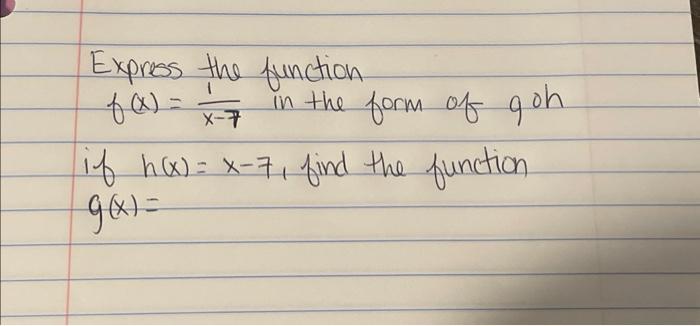 Express the function
f(x) = 1/(x-7) in the form of g∘h
if h(x) = x-7, find the function
g(x) =